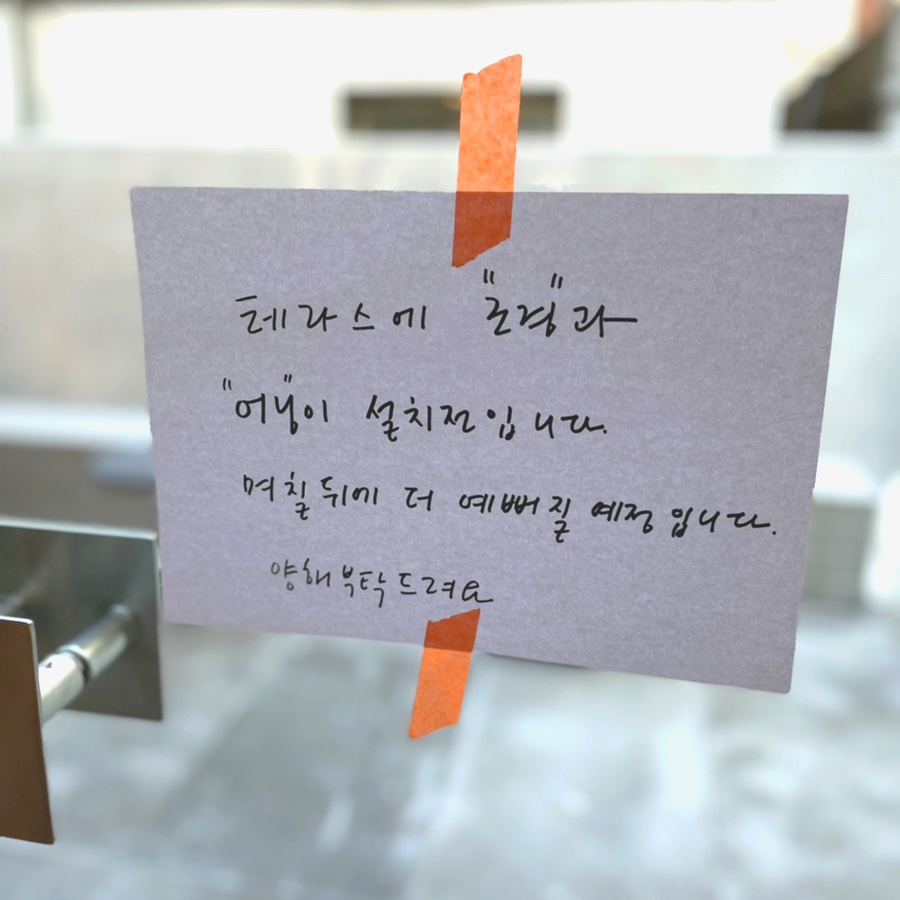 테라스에 "조경"과
"어닝"이 설치전입니다.
며칠뒤에 더 예뻐질 예정입니다.
양해부탁드려요